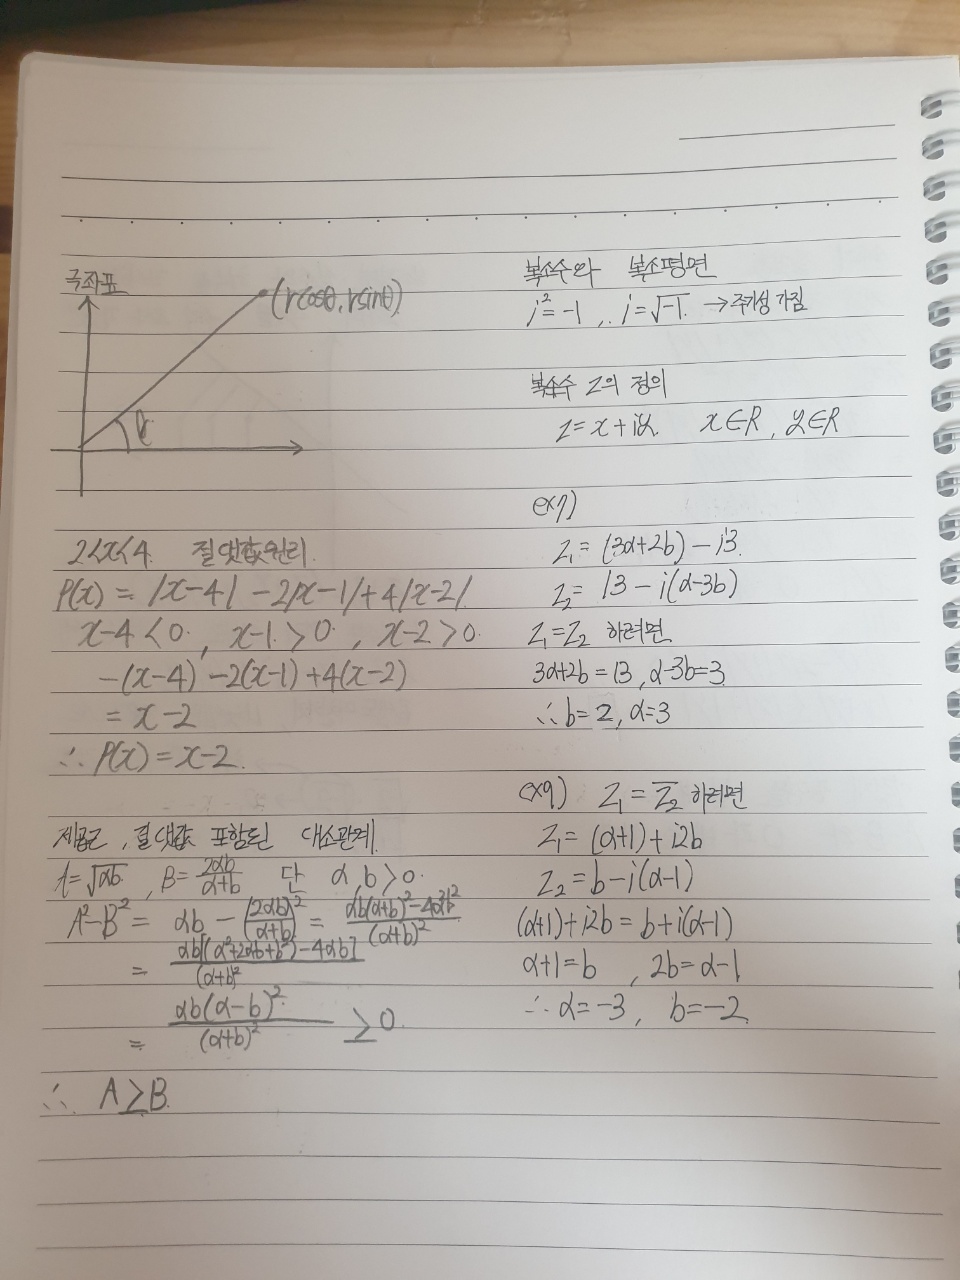 극좌표
(rcosθ, rsinθ)
2<x<4. 절댓값원리.
P(x) = |x-4| -2|x-1|+4|x-2|.
x-4<0, x-1>0, x-2>0.
-(x-4) -2(x-1)+4(x-2)
= x-2
∴ P(x) = x-2.
제곱근, 절댓값 포함된 대소관계.
A=√ab, B=2ab/(a+b) 단 a,b>0.
A²-B² = ab - (2ab/(a+b))² = (ab(a+b)²-4a²b²)/(a+b)²
= ab[(a²+2ab+b²)-4ab]/(a+b)²
= ab(a-b)²/(a+b)² ≥0.
∴ A≥B.
복소수와 복소평면
i²=-1, i=√-1. →주기성 가짐
복소수 Z의 정의
Z=x+iy. x∈R, y∈R
ex7)
Z₁= (3a+2b)-i3.
Z₂= 13-i(a-3b)
Z₁=Z₂ 하려면
3a+2b=13, a-3b=3.
∴ b=2, a=3
ex9) Z₁=Z̅₂ 하려면
Z₁= (a+1)+i2b
Z₂= b-i(a-1)
(a+1)+i2b = b+i(a-1)
a+1=b, 2b=a-1
∴ a=-3, b=-2.